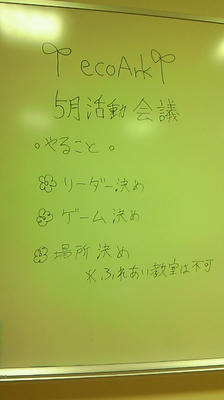 ecoArk
5月活動会議
○やること○
リーダー決め
ゲーム決め
場所決め
※ふれあい教室は不可